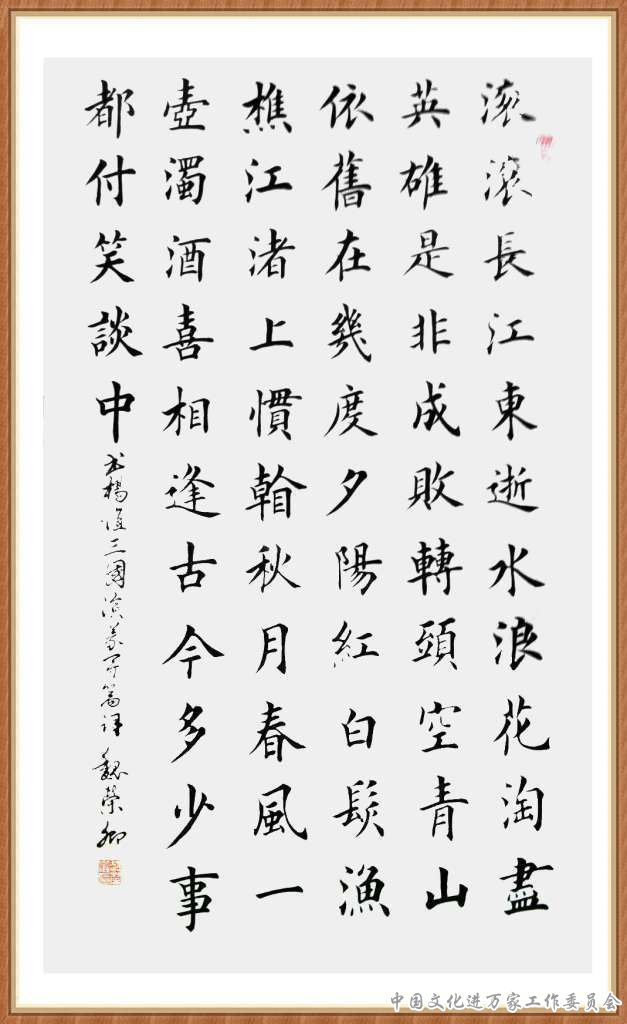 滚滚長江東逝水浪花淘盡
英雄是非成敗轉頭空青山
依舊在幾度夕陽紅白髮漁
樵江渚上慣看秋月春風一
壺濁酒喜相逢古今多少事
都付笑談中
书楊慎三國演義开篇詞 魏榮卿
中国文化进万家工作委员会